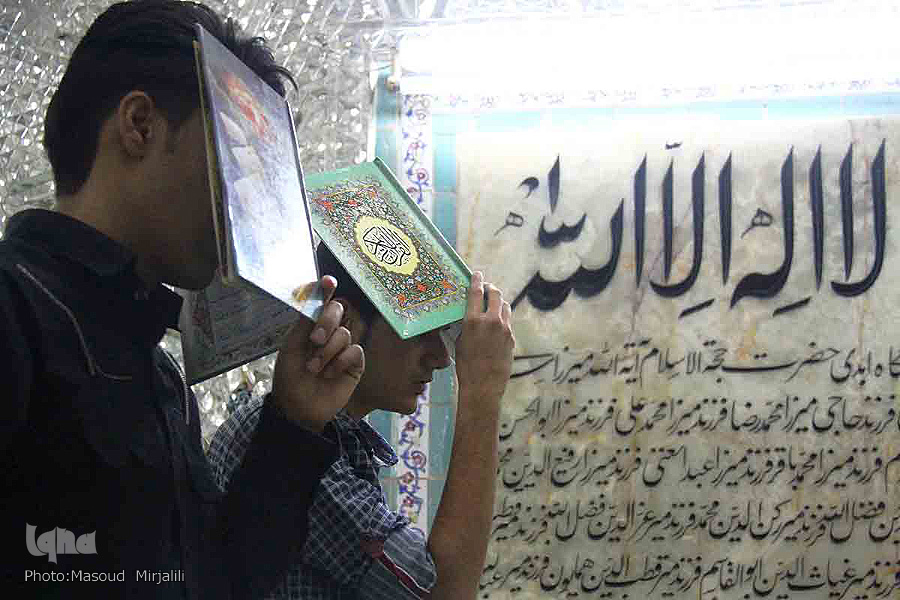 لا اله الا الله
گاه ابدی حضرت حجة الاسلام آیة الله میرزا
فرزند حاجی میرزا محمد رضا فرزند میرزا محمد علی فرزند میرزا ابوالحسن
فرزند میرزا محمد باقر فرزند میرزا عبدالغنی فرزند میرزا رفیع الدین
فضل الله فرزند میر رکن الدین محمد فرزند میر عز الدین فضل الله فرزند میر
میر غیاث الدین ابوالقاسم فرزند میر قطب الدین همایون فرزند میر
القرآن الکریم
Iqna
Photo:Masoud Mirjalili